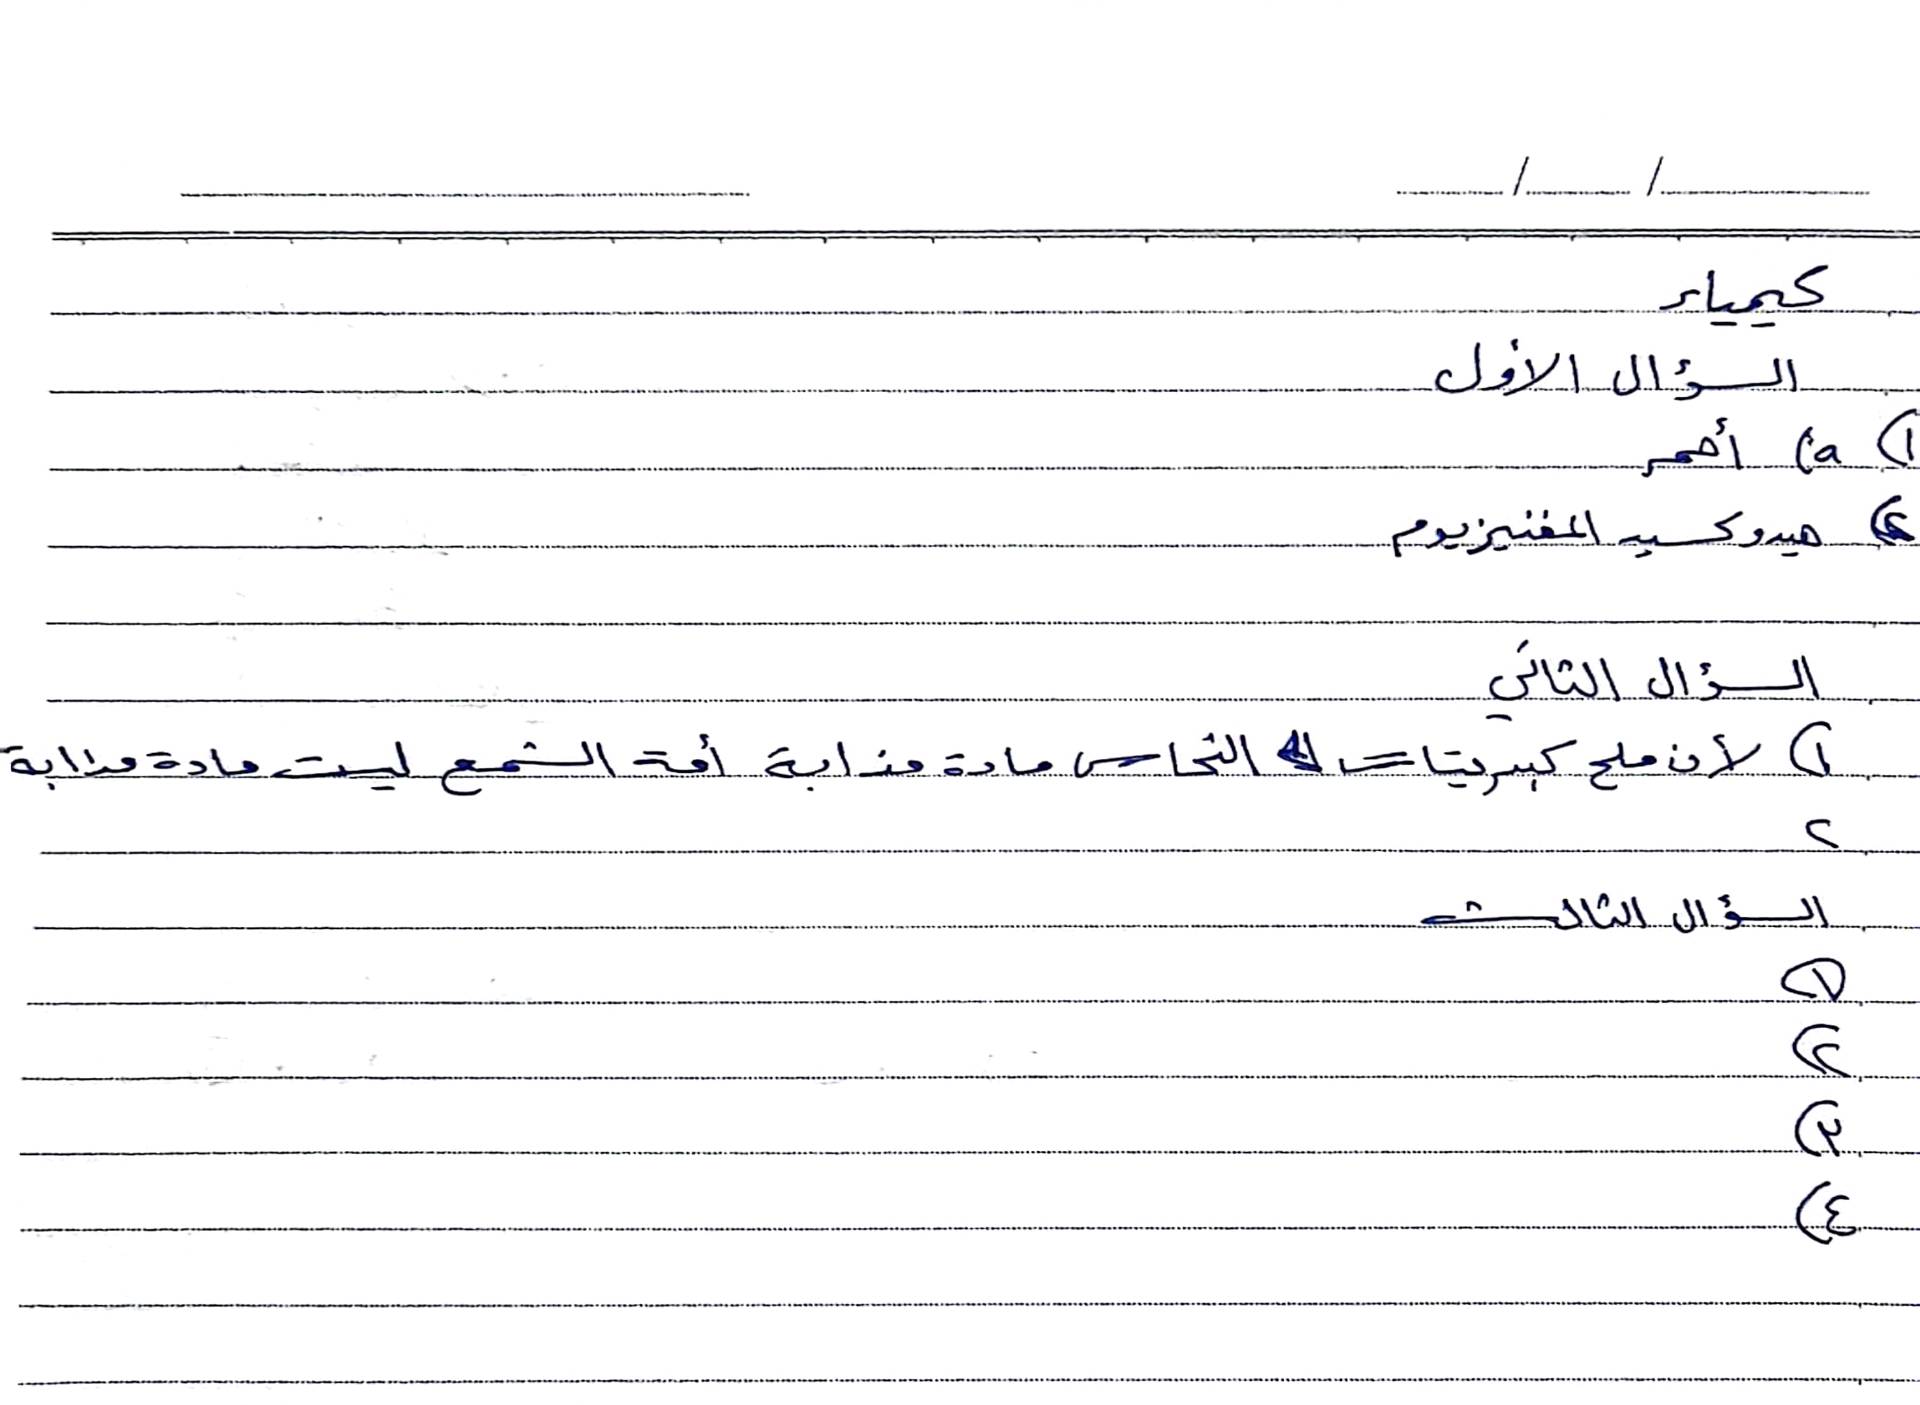 كيمياء
السؤال الأول
١) a) أحمر
٢) هيدوكسيد المغنيزيوم
السؤال الثاني
١) لأن ملح كبريتات النحاس مادة مذابة أمة الشمع ليست مادة مذابة
٢
السؤال الثالث
١)
٢)
٣)
٤)